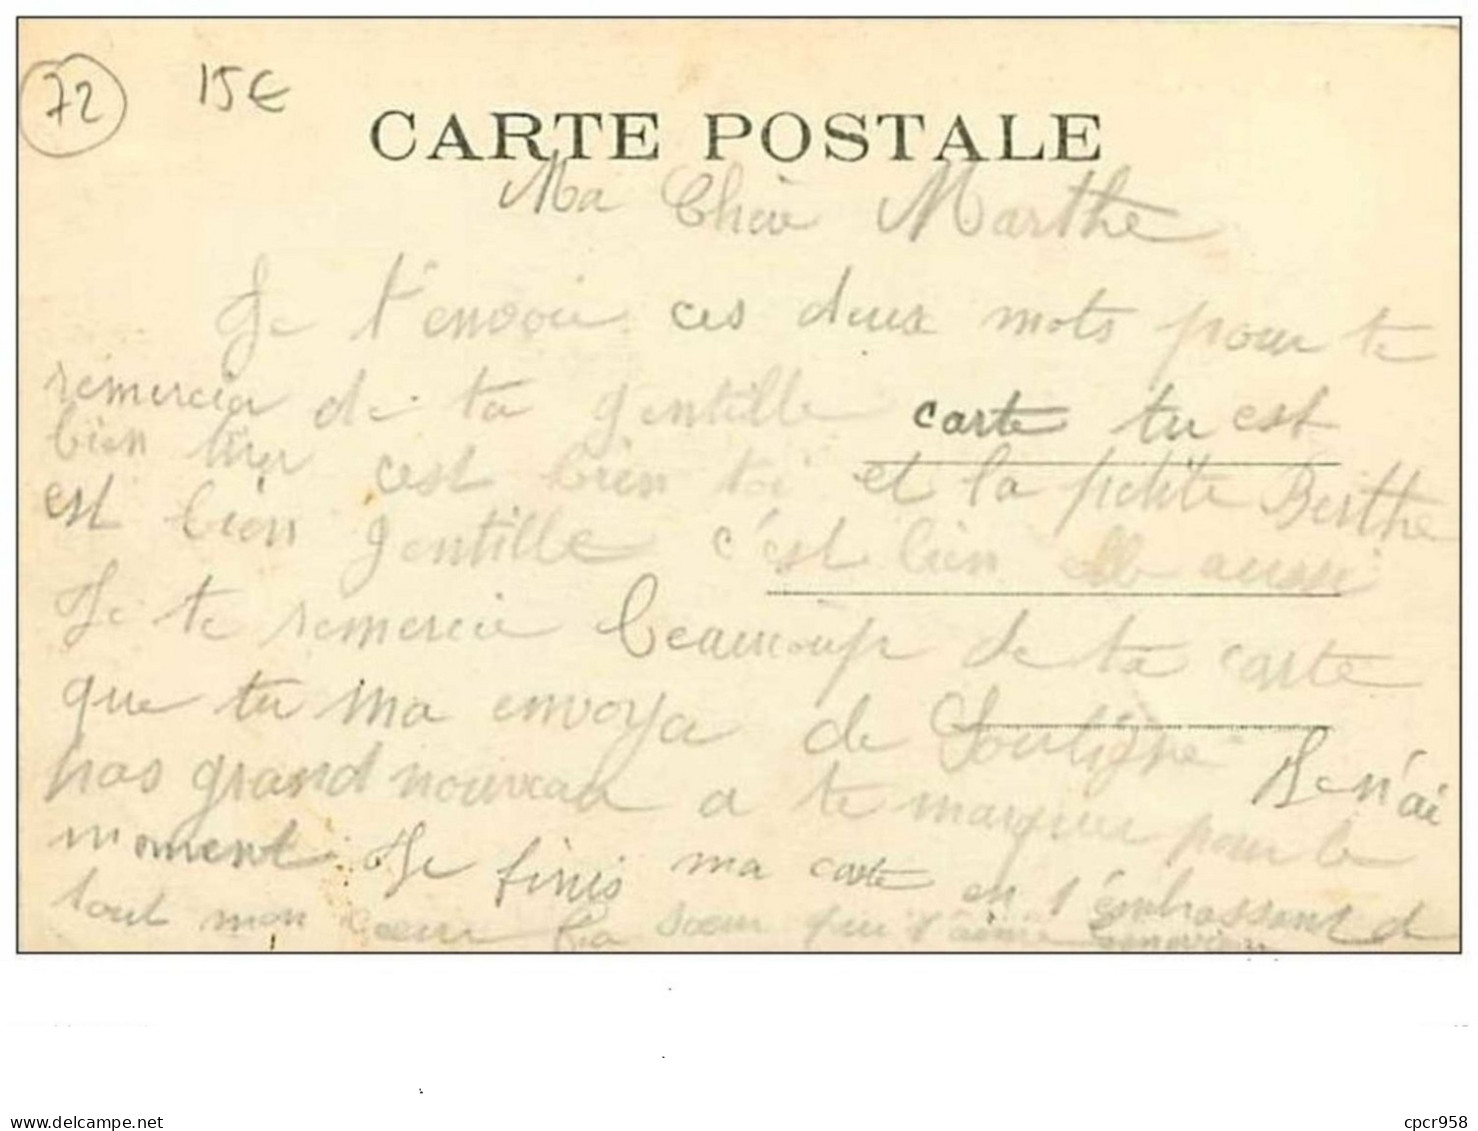 72
15€
CARTE POSTALE
Ma Chère Marthe
Je t'envoie ces deux mots pour te
remercier de ta gentille carte tu est
bien c'est bien toi et la petite Berthe
est bien gentille c'est bien elle aussi
Je te remercie beaucoup de ta carte
que tu ma envoya de Souligné Je n'ai
pas grand nouveau a te marquer pour le
moment Je finis ma carte en t'embrassant d
tout mon cœur Ta sœur qui t'aime
delcampe.net
cpcr958